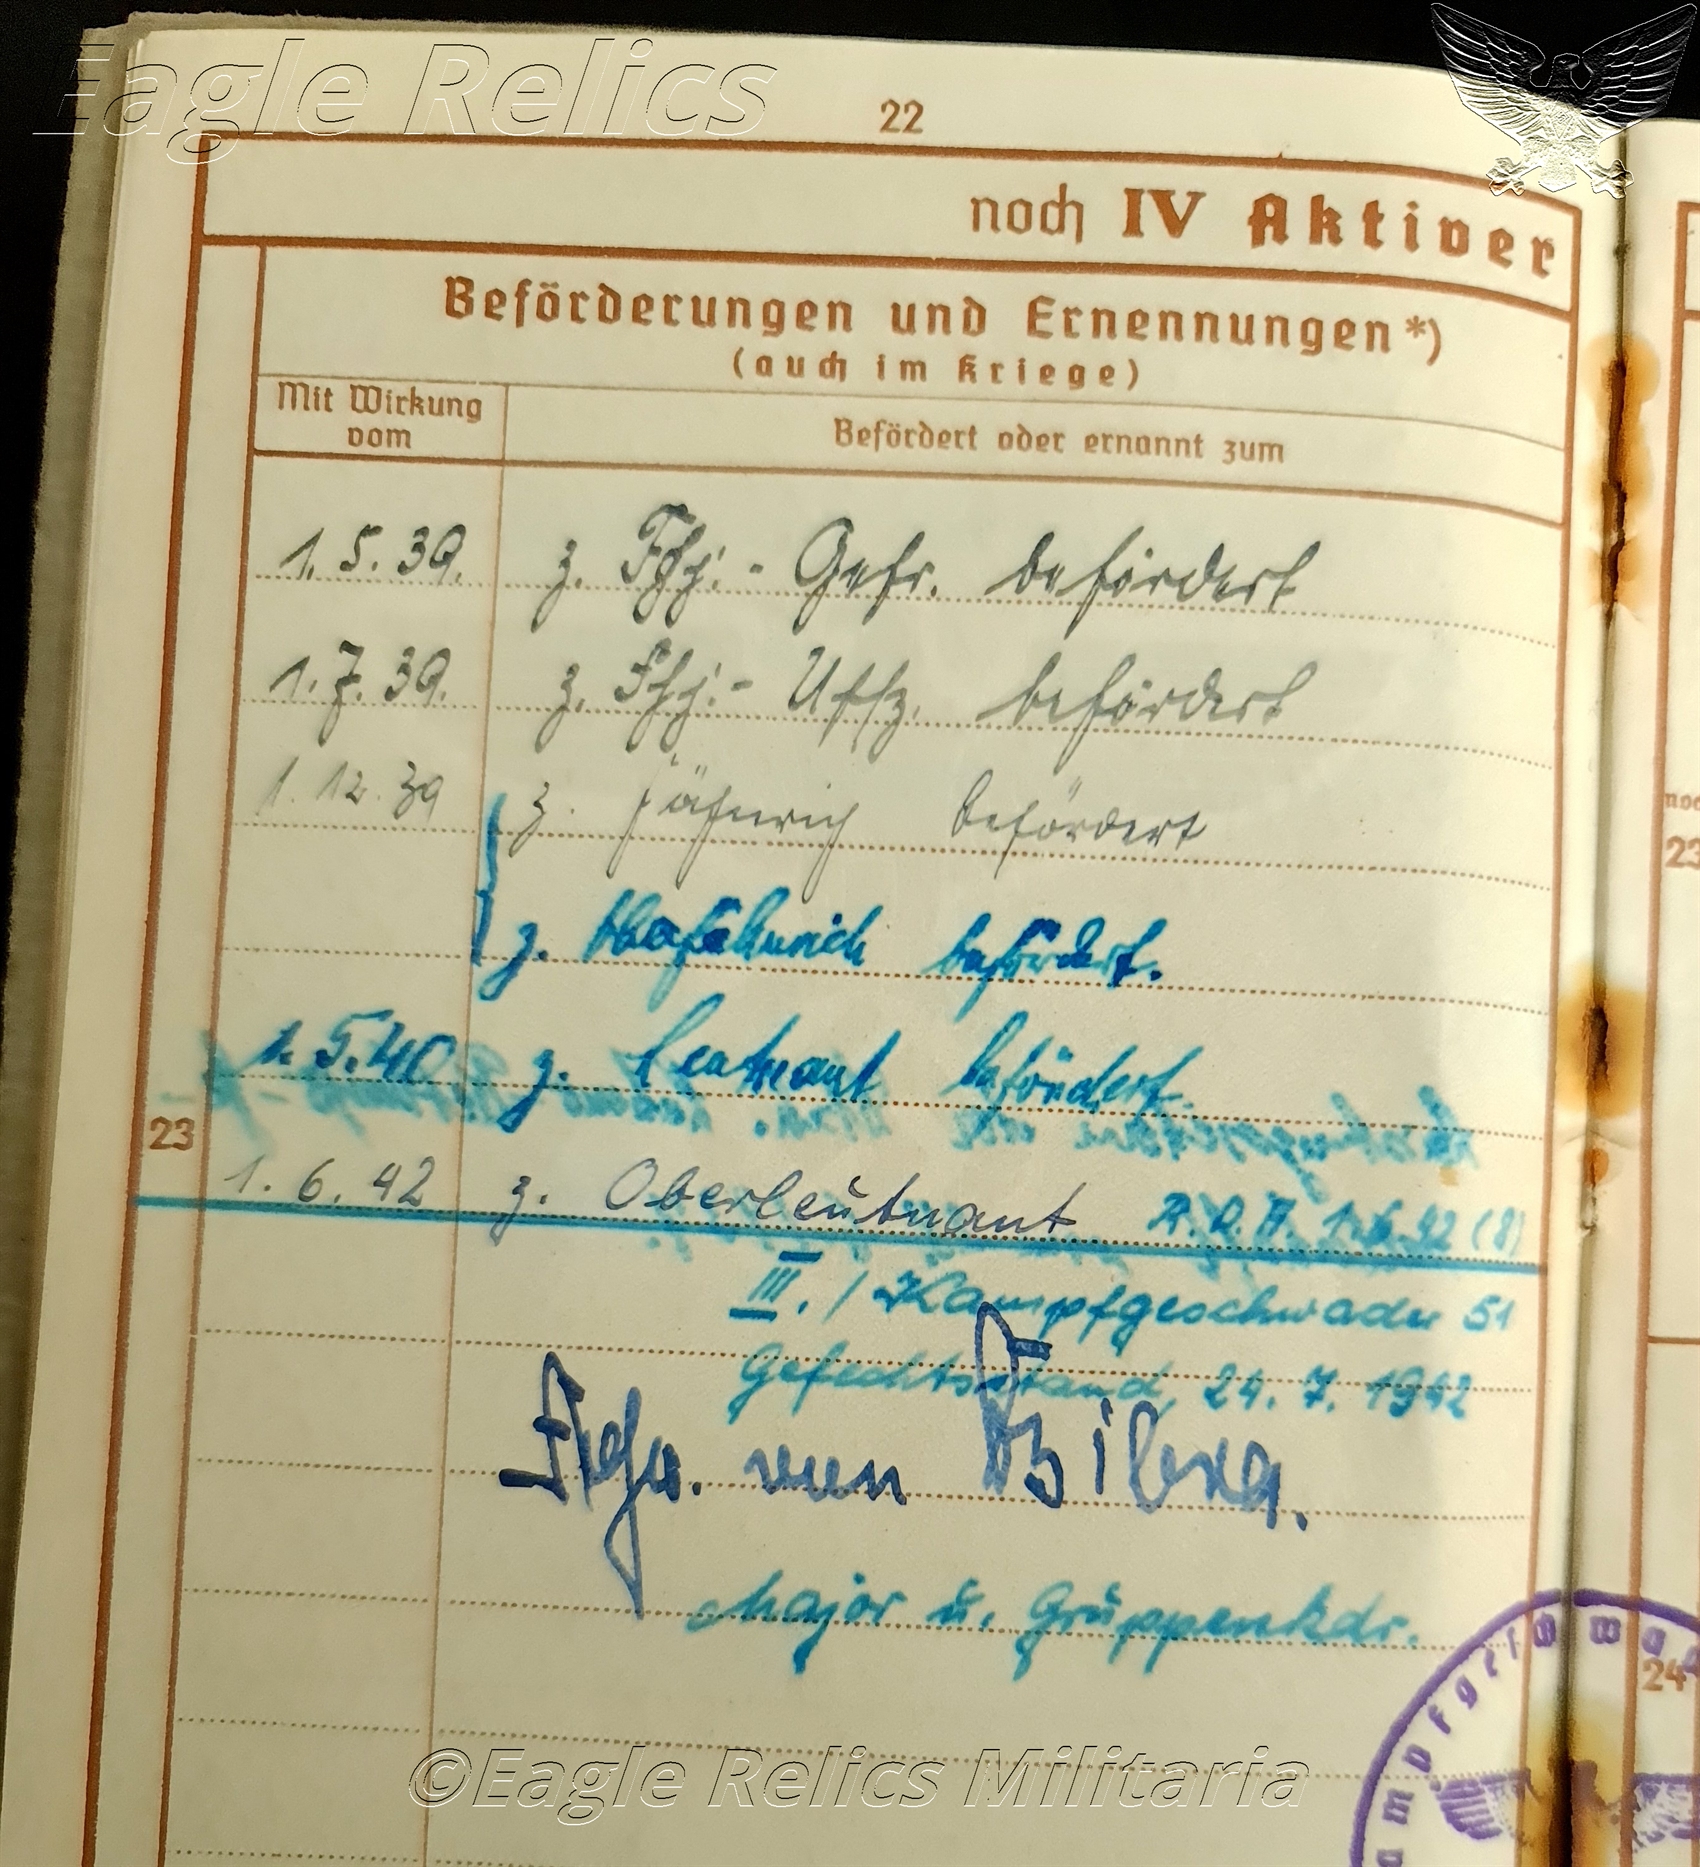 Eagle Relics
22
noch IV Aktiver
Beförderungen und Ernennungen*)
(auch im Kriege)
Mit Wirkung vom
Befördert oder ernannt zum
1. 5. 39. z. Fhj.-Gefr. befördert
1. 7. 39. z. Fhj.-Uffz. befördert
1. 12. 39 z. Fähnrich befördert
z. befördert.
1. 5. 40 z. Leutnant befördert.
23
1. 6. 42 z. Oberleutnant R.D.A. 1. 6. 42 (8)
III. / Kampfgeschwader 51
Gefechtsstand, 24. 7. 1942
von Bibra.
Major u. Gruppenkdr.
©Eagle Relics Militaria
ampfgeschwa
noc
23
24